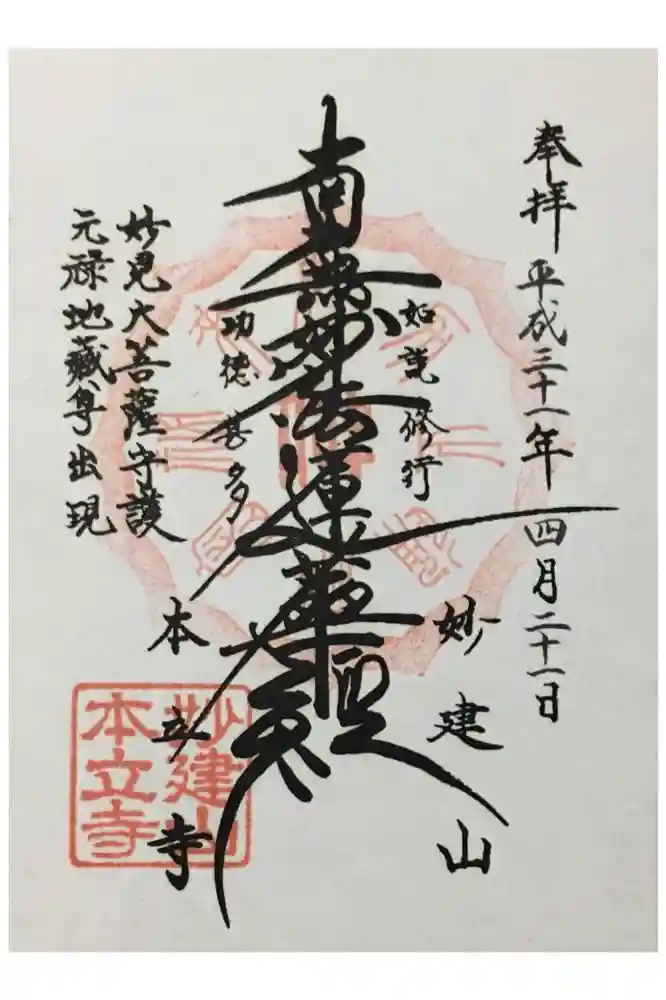 奉拝 平成三十一年 四月二十一日
妙建山
如説修行
南無妙法蓮華経
功徳甚多
本立寺
妙見大菩薩守護
元禄地蔵尊出現
妙建山
本立寺